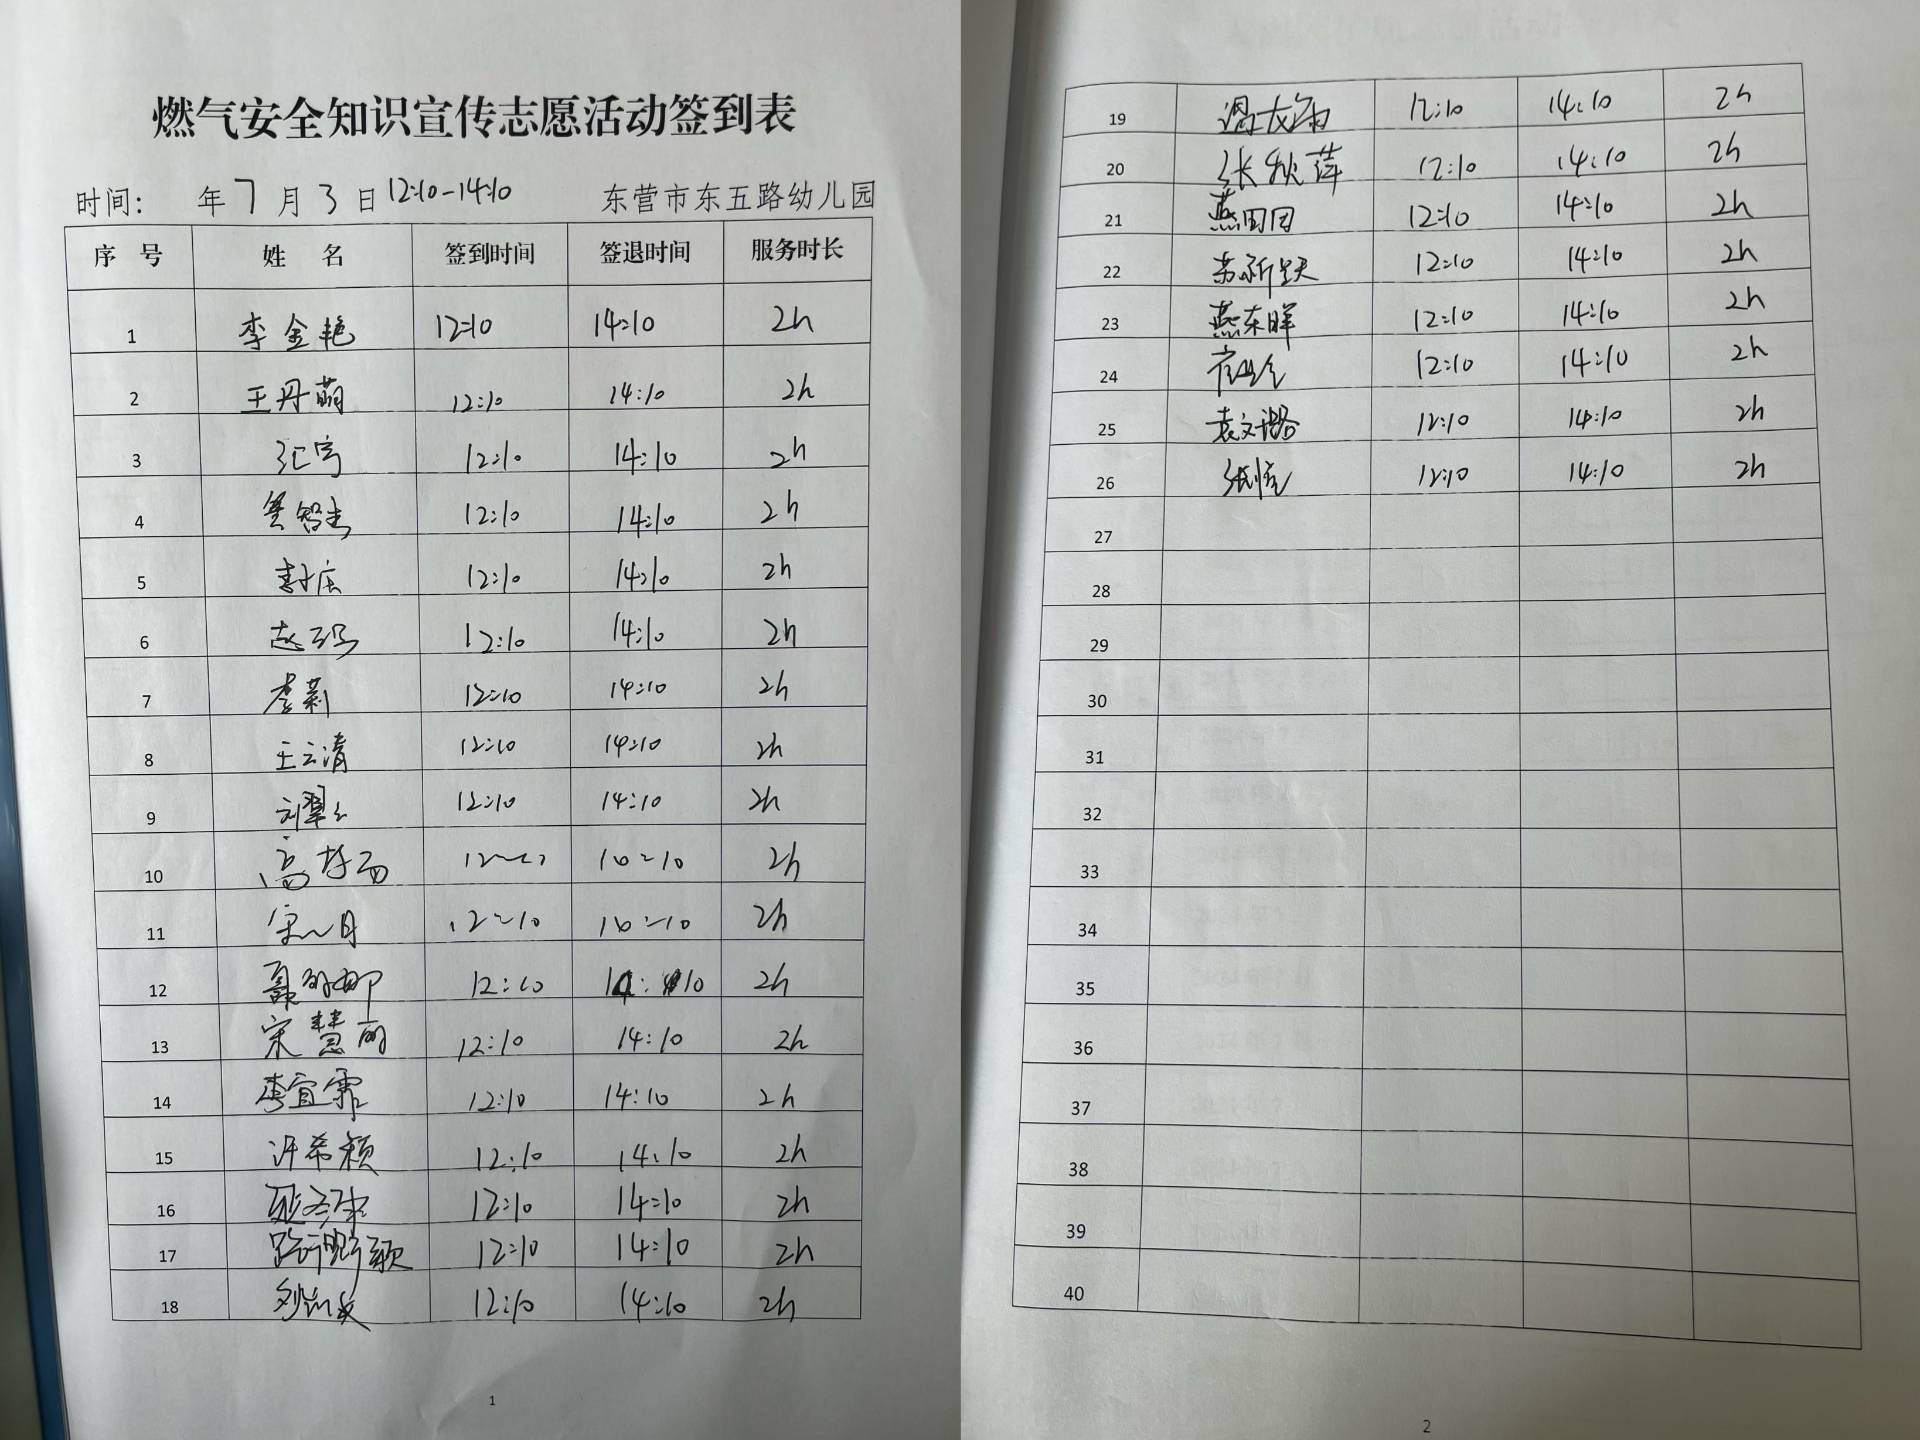 燃气安全知识宣传志愿活动签到表
时间: 年7月3日12:10-14:10 东营市东五路幼儿园
序号 姓名 签到时间 签退时间 服务时长
1 李金艳 12:10 14:10 2h
2 王丹萌 12:10 14:10 2h
3 12:10 14:10 2h
4 12:10 14:10 2h
5 12:10 14:10 2h
6 12:10 14:10 2h
7 李莉 12:10 14:10 2h
8 王云清 12:10 14:10 2h
9 刘翠 12:10 14:10 2h
10 高 2h
11 2h
12 12:10 2h
13 宋慧丽 12:10 14:10 2h
14 李宜霏 12:10 14:10 2h
15 许希颖 12:10 14:10 2h
16 12:10 14:10 2h
17 12:10 14:10 2h
18 12:10 14:10 2h
1
19 12:10 14:10 2h
20 张秋萍 12:10 14:10 2h
21 燕团团 12:10 14:10 2h
22 苏新 12:10 14:10 2h
23 燕东晖 12:10 14:10 2h
24 12:10 14:10 2h
25 袁文璐 12:10 14:10 2h
26 12:10 14:10 2h
27
28
29
30
31
32
33
34
35
36
37
38
39
40
2